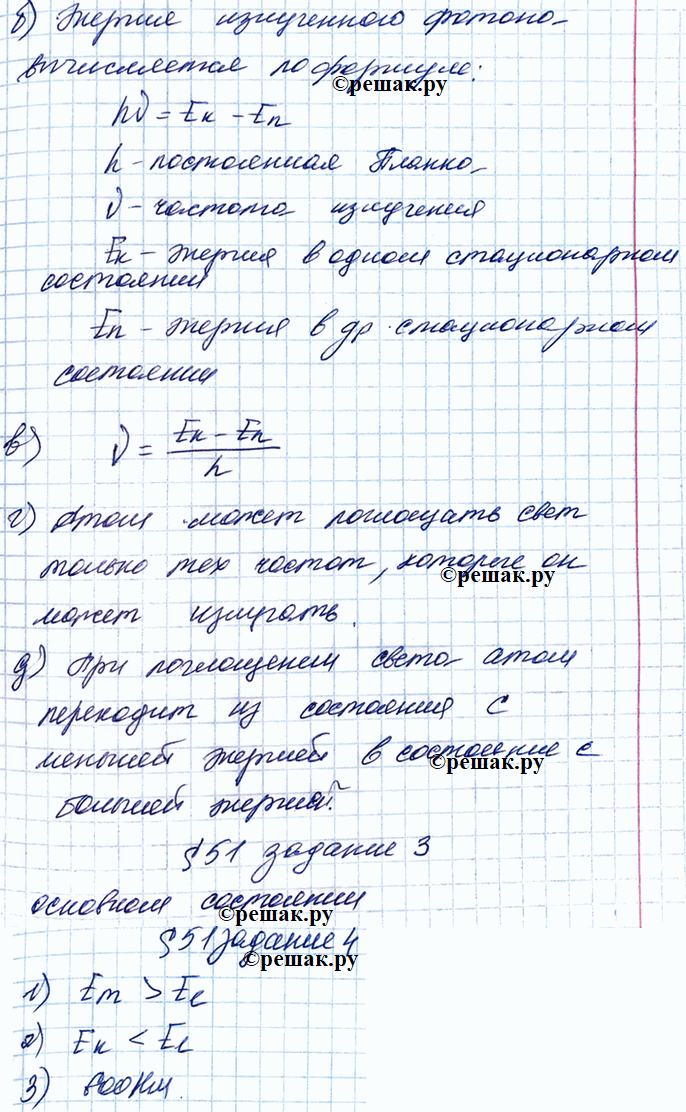 б) Энергия излученного фотона
вычисляется по формуле:
©решак.ру
hν = Eк − En
h – постоянная Планка
ν – частота излучения
Eк – энергия в одном стационарном
состоянии
En – энергия в др. стационарном
состоянии
в) ν = (Eк − En) / h
г) Атом может поглощать свет
только тех частот, которые он
©решак.ру
может излучать.
д) При поглощении света атом
переходит из состояния с
меньшей энергией в состояние с
©решак.ру
большей энергией.
§51 задание 3
основном состоянии
©решак.ру
§51 задание 4
©решак.ру
1) Em > Ee
2) Eк < Ee
3)